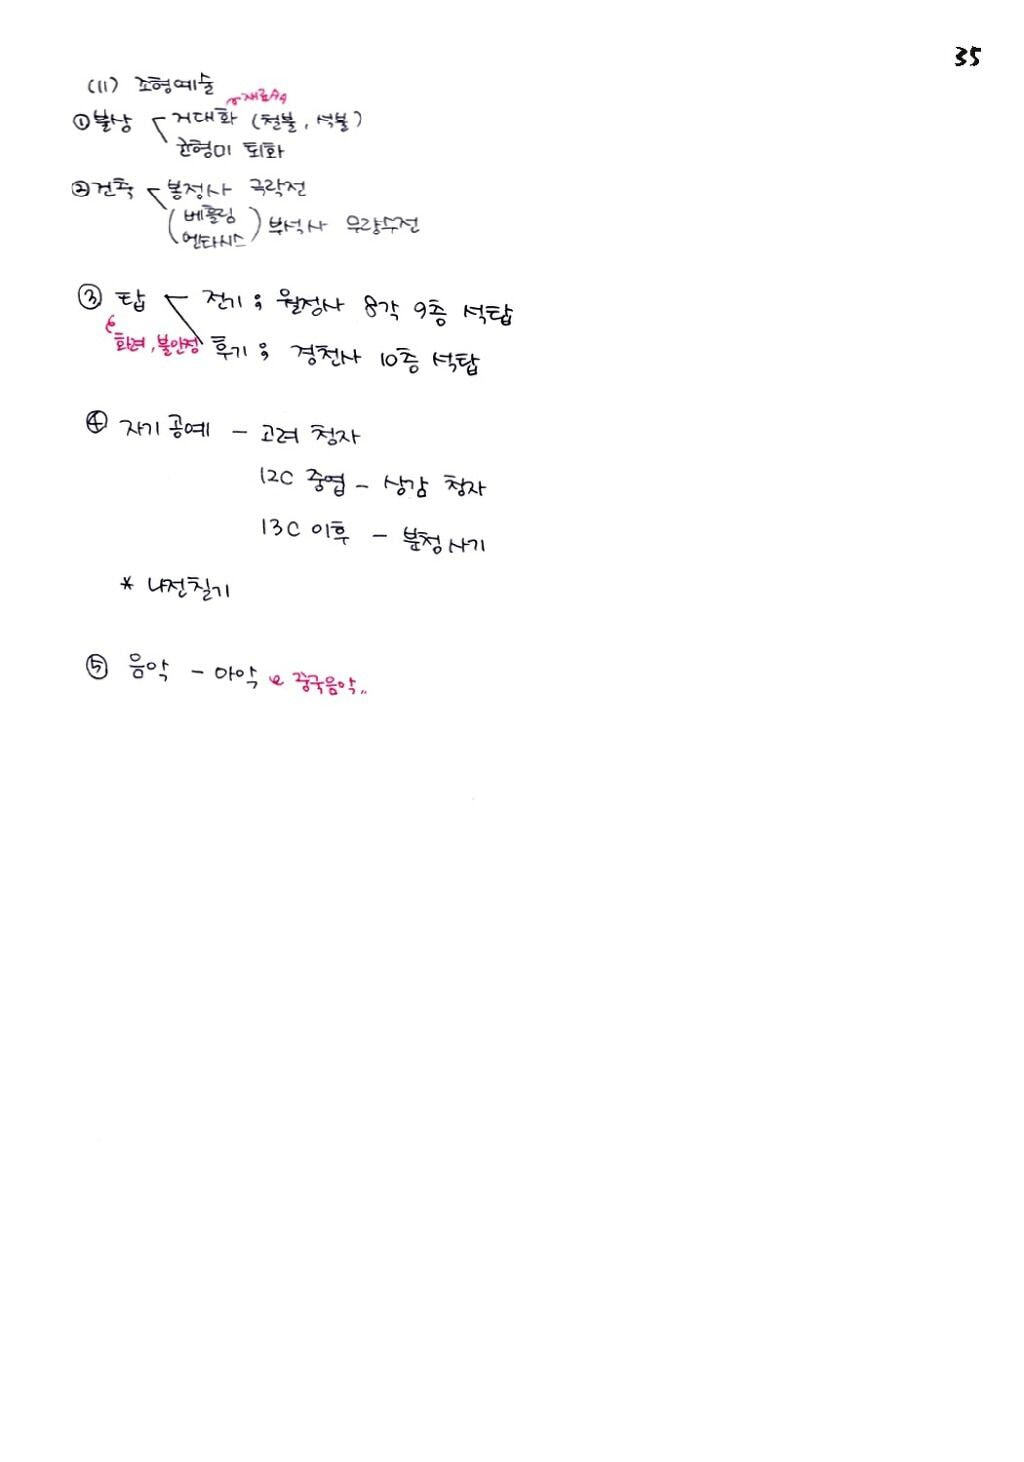 35
(11) 조형예술
① 불상 거대화 (철불, 석불)
균형미 퇴화
② 건축 봉정사 극락전
(배흘림 엔타시스) 부석사 무량수전
③ 탑 전기; 월정사 8각 9층 석탑
화려, 불안정 후기; 경천사 10층 석탑
④ 자기 공예 - 고려 청자
12C 중엽 - 상감 청자
13C 이후 - 분청사기
* 나전칠기
⑤ 음악 - 아악 중국음악..